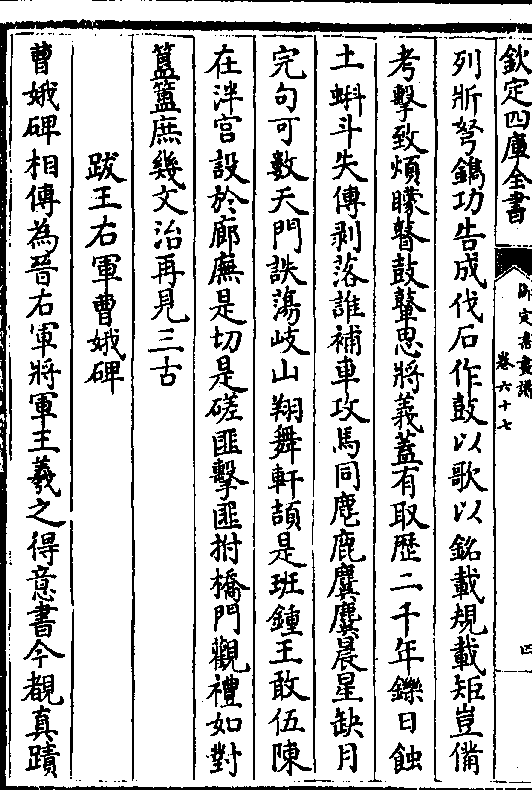 欽定四庫全書
御定書畫譜
卷六十七
四
列斨弩鐫功告成伐石作鼓以歌以銘載規載矩豈備
考擊致煩矇瞽鼓鼙思將義蓋有取歴二千年鑠日蝕
土蝌斗失傳剥落誰補車攻馬同麀鹿麌麌晨星缺月
完句可數天門詄蕩岐山翔舞軒頡是班鍾王敢伍陳
在泮宫設於廊廡是切是磋匪擊匪拊橋門觀禮如對
簋簠庶幾文治再見三古
跋王右軍曹娥碑
曹娥碑相傳為晉右軍將軍王羲之得意書今覩真蹟